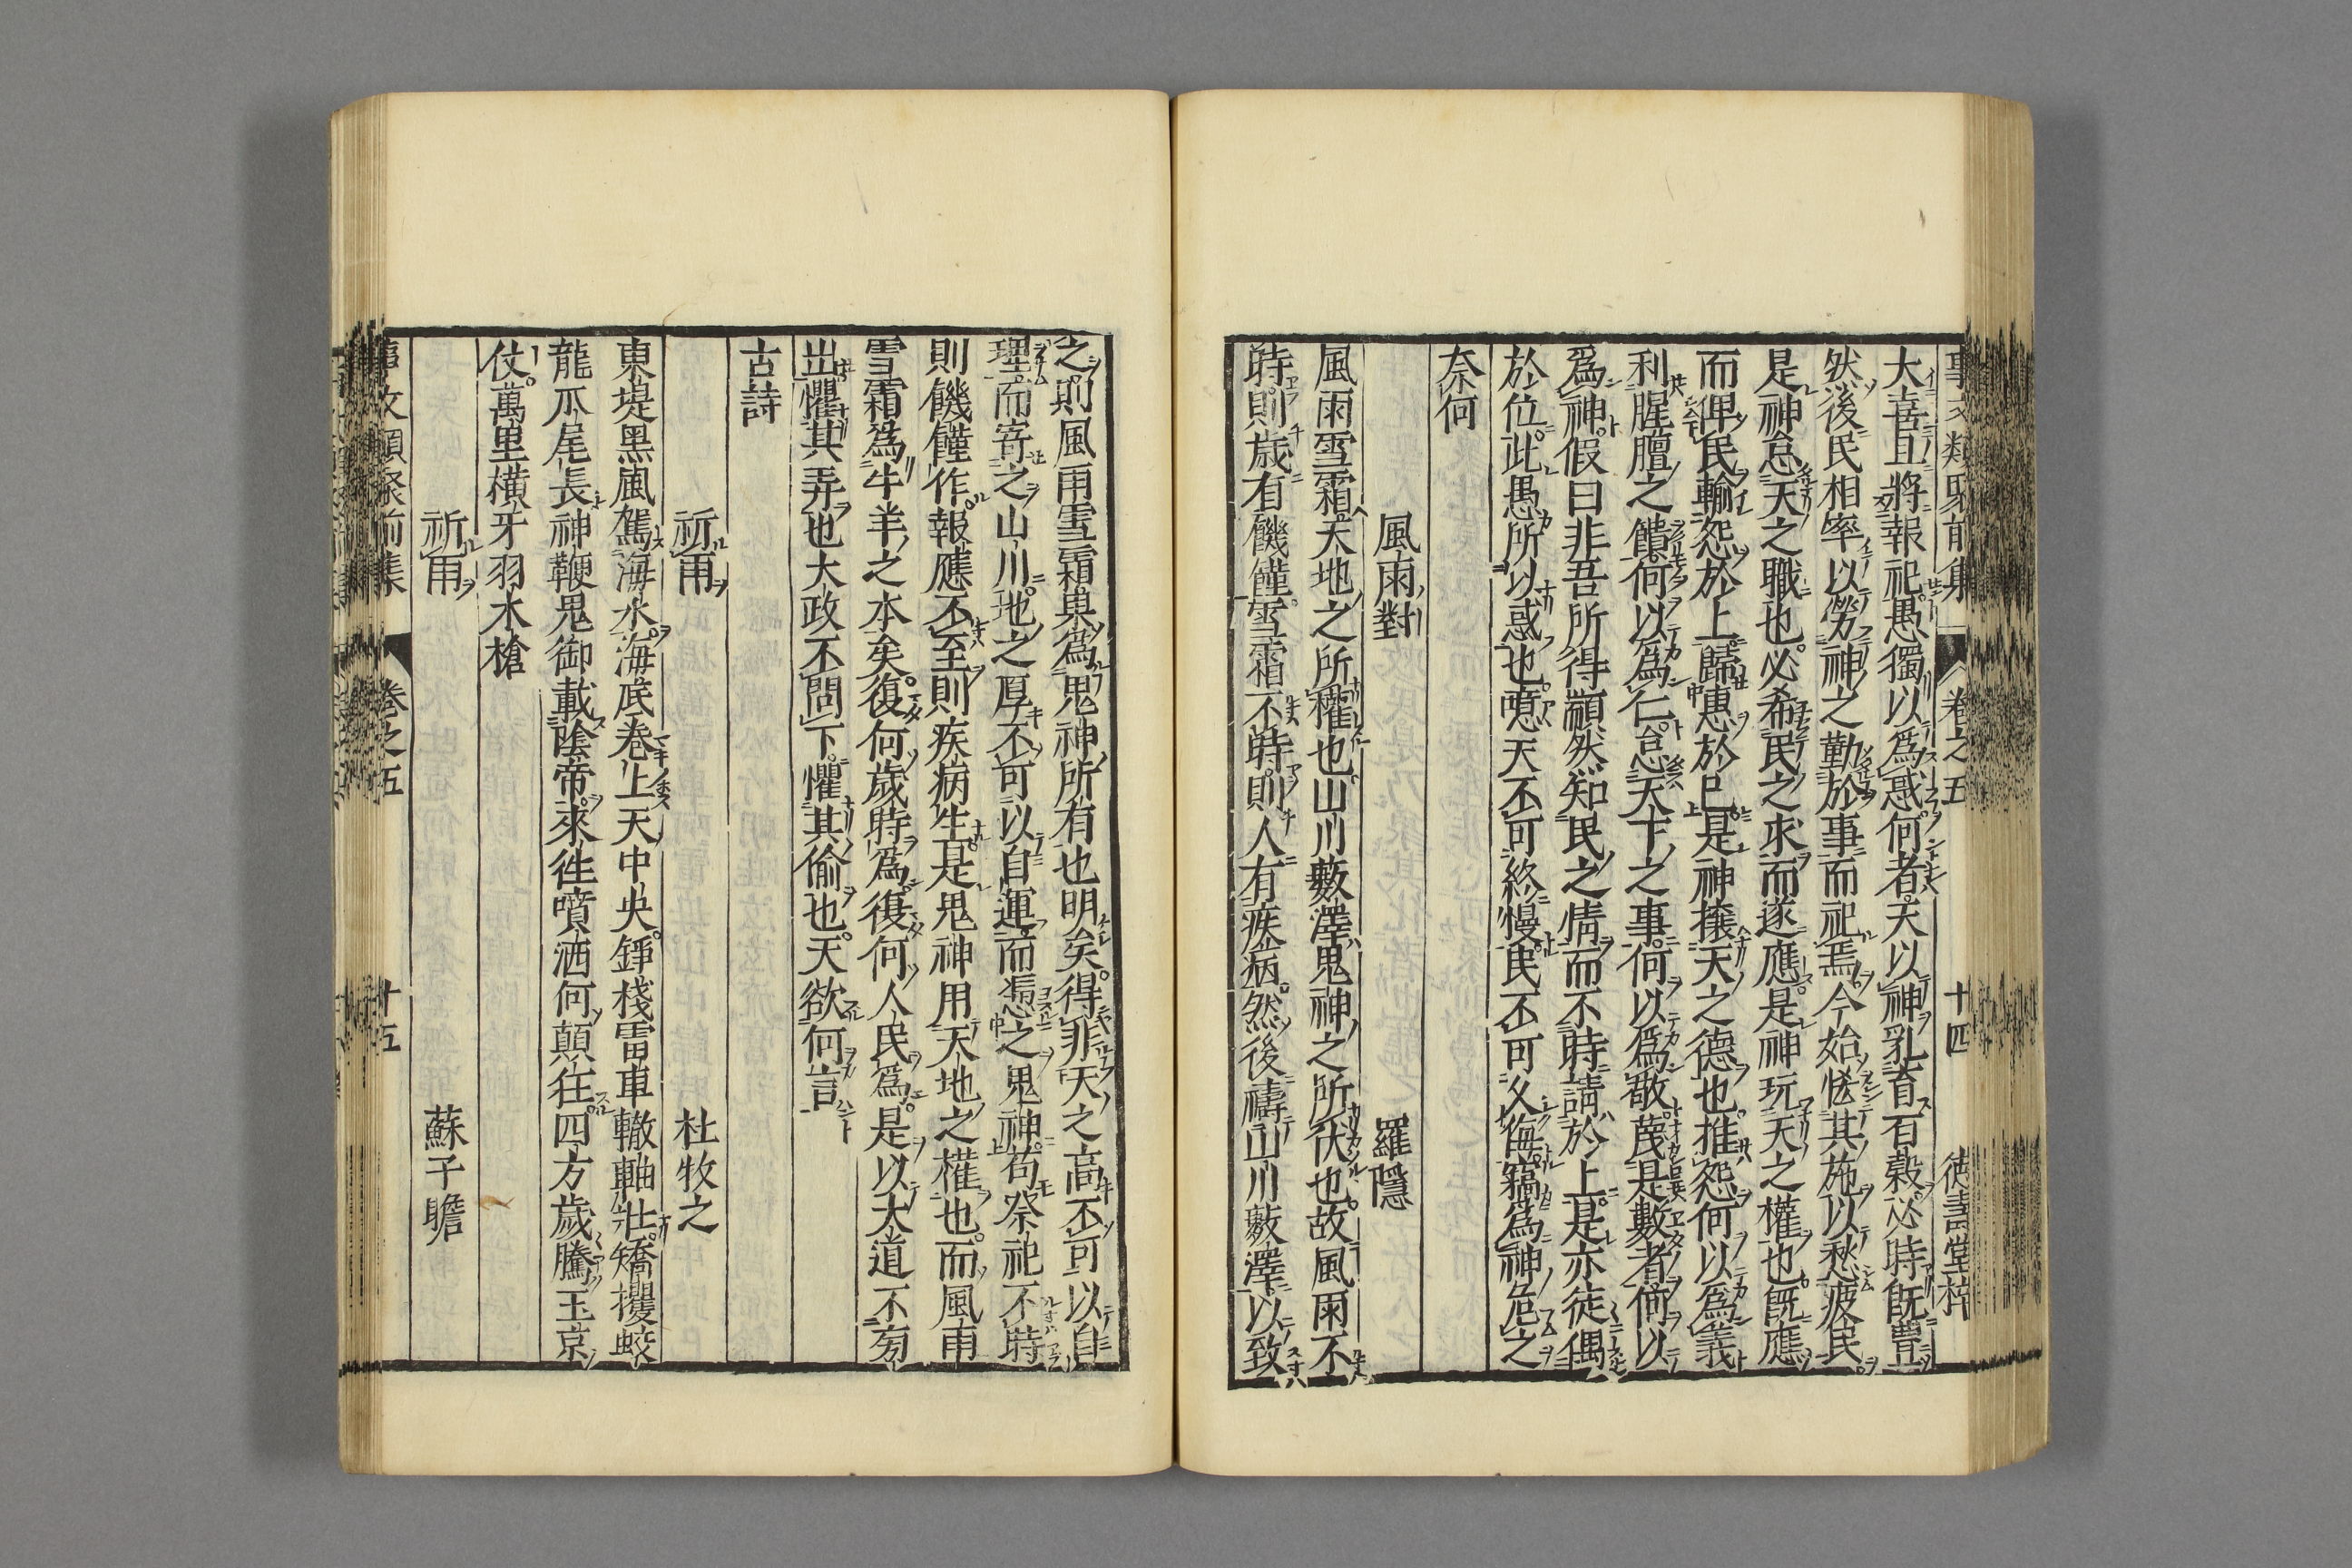 事文類聚前集 卷之五 十四 德壽堂梓
大喜且將報祀愚獨以爲惑何者天以神乳育百穀必時既豊
然後民相率以勞神之勤於事而祀焉今始恡其施以愁疲民
是神怠天之職也必希民之求而遂應是神玩天之權也既應
而俾民輸怨於上歸惠於己是神攘天之德也推怨何以爲義
利腥膻之饋何以爲仁怠天下之事何以爲敬蔑是數者何以
爲神假曰非吾所得顓然知民之情而不時請於上是亦徒偶
於位此愚所以惑也噫天不可終慢民不可久侮竊爲神危之
奈何
風雨對 羅隱
風雨雪霜天地之所權也山川藪澤鬼神之所伏也故風雨不
時則歳有饑饉雪霜不時則人有疾病然後禱山川藪澤以致
之則風雨雪霜果爲鬼神所有也明矣得非天之高不可以自
理而寄之山川地之厚不可以自運而憑之鬼神苟祭祀不時
則饑饉作報應不至則疾病生是鬼神用天地之權也而風雨
雪霜爲牛羊之本矣復何歲時爲復何人民爲是以大道不旁
出懼其弄也大政不問下懼其偷也天欲何言
古詩
祈雨 杜牧之
東堤黑風駕海水海底卷上天中央錚棧雷車轍軸壯矯攫蛟
龍爪尾長神鞭鬼御載陰帝來徃噴洒何顛狂四方歲騰玉京
仗萬里橫牙羽木槍
祈雨 蘇子瞻
事文類聚前集 卷之五 十五